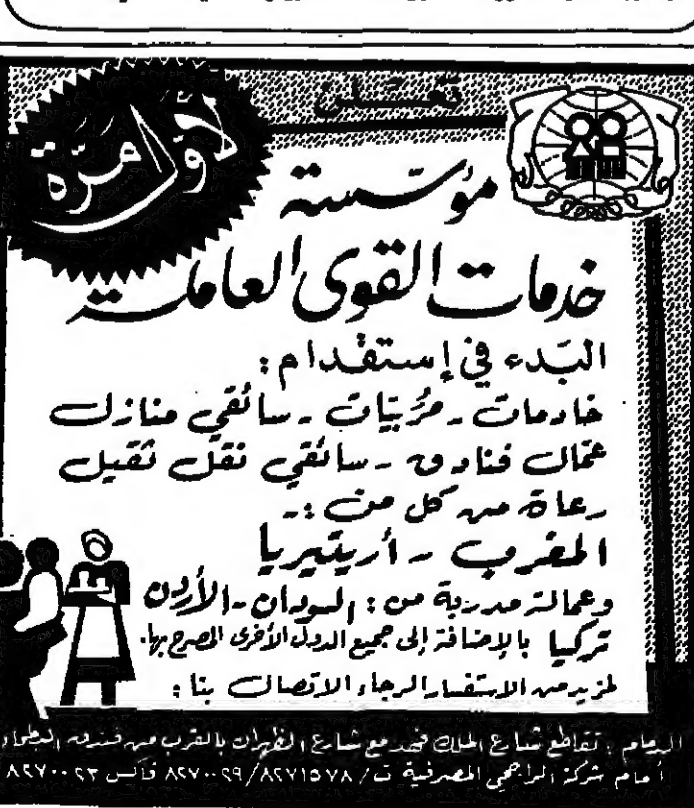 تعلن
لأول مرة
مؤسسة
خدمات القوى العاملة
البَدء في إستقدام :
خادمات - مُربّيات - سائقي منازل
عمّال فنادق - سائقي نقل ثقيل
رعاة من كل من :-
المغرب - أريتيريا
وعمالة مدربة من : السودان - الأردن
تركيا بالإضافة إلى جميع الدول الأخرى المصرح بها.
لمزيد من الاستفسار الرجاء الاتصال بنا :
الدمام : تقاطع شارع الملك فهد مع شارع الظهران بالقرب من فندق
أمام شركة الراجحي المصرفية ت / ٨٢٧١٥٧٨ / ٨٢٧٠٠٢٩ فاكس ٨٢٧٠٠٢٣